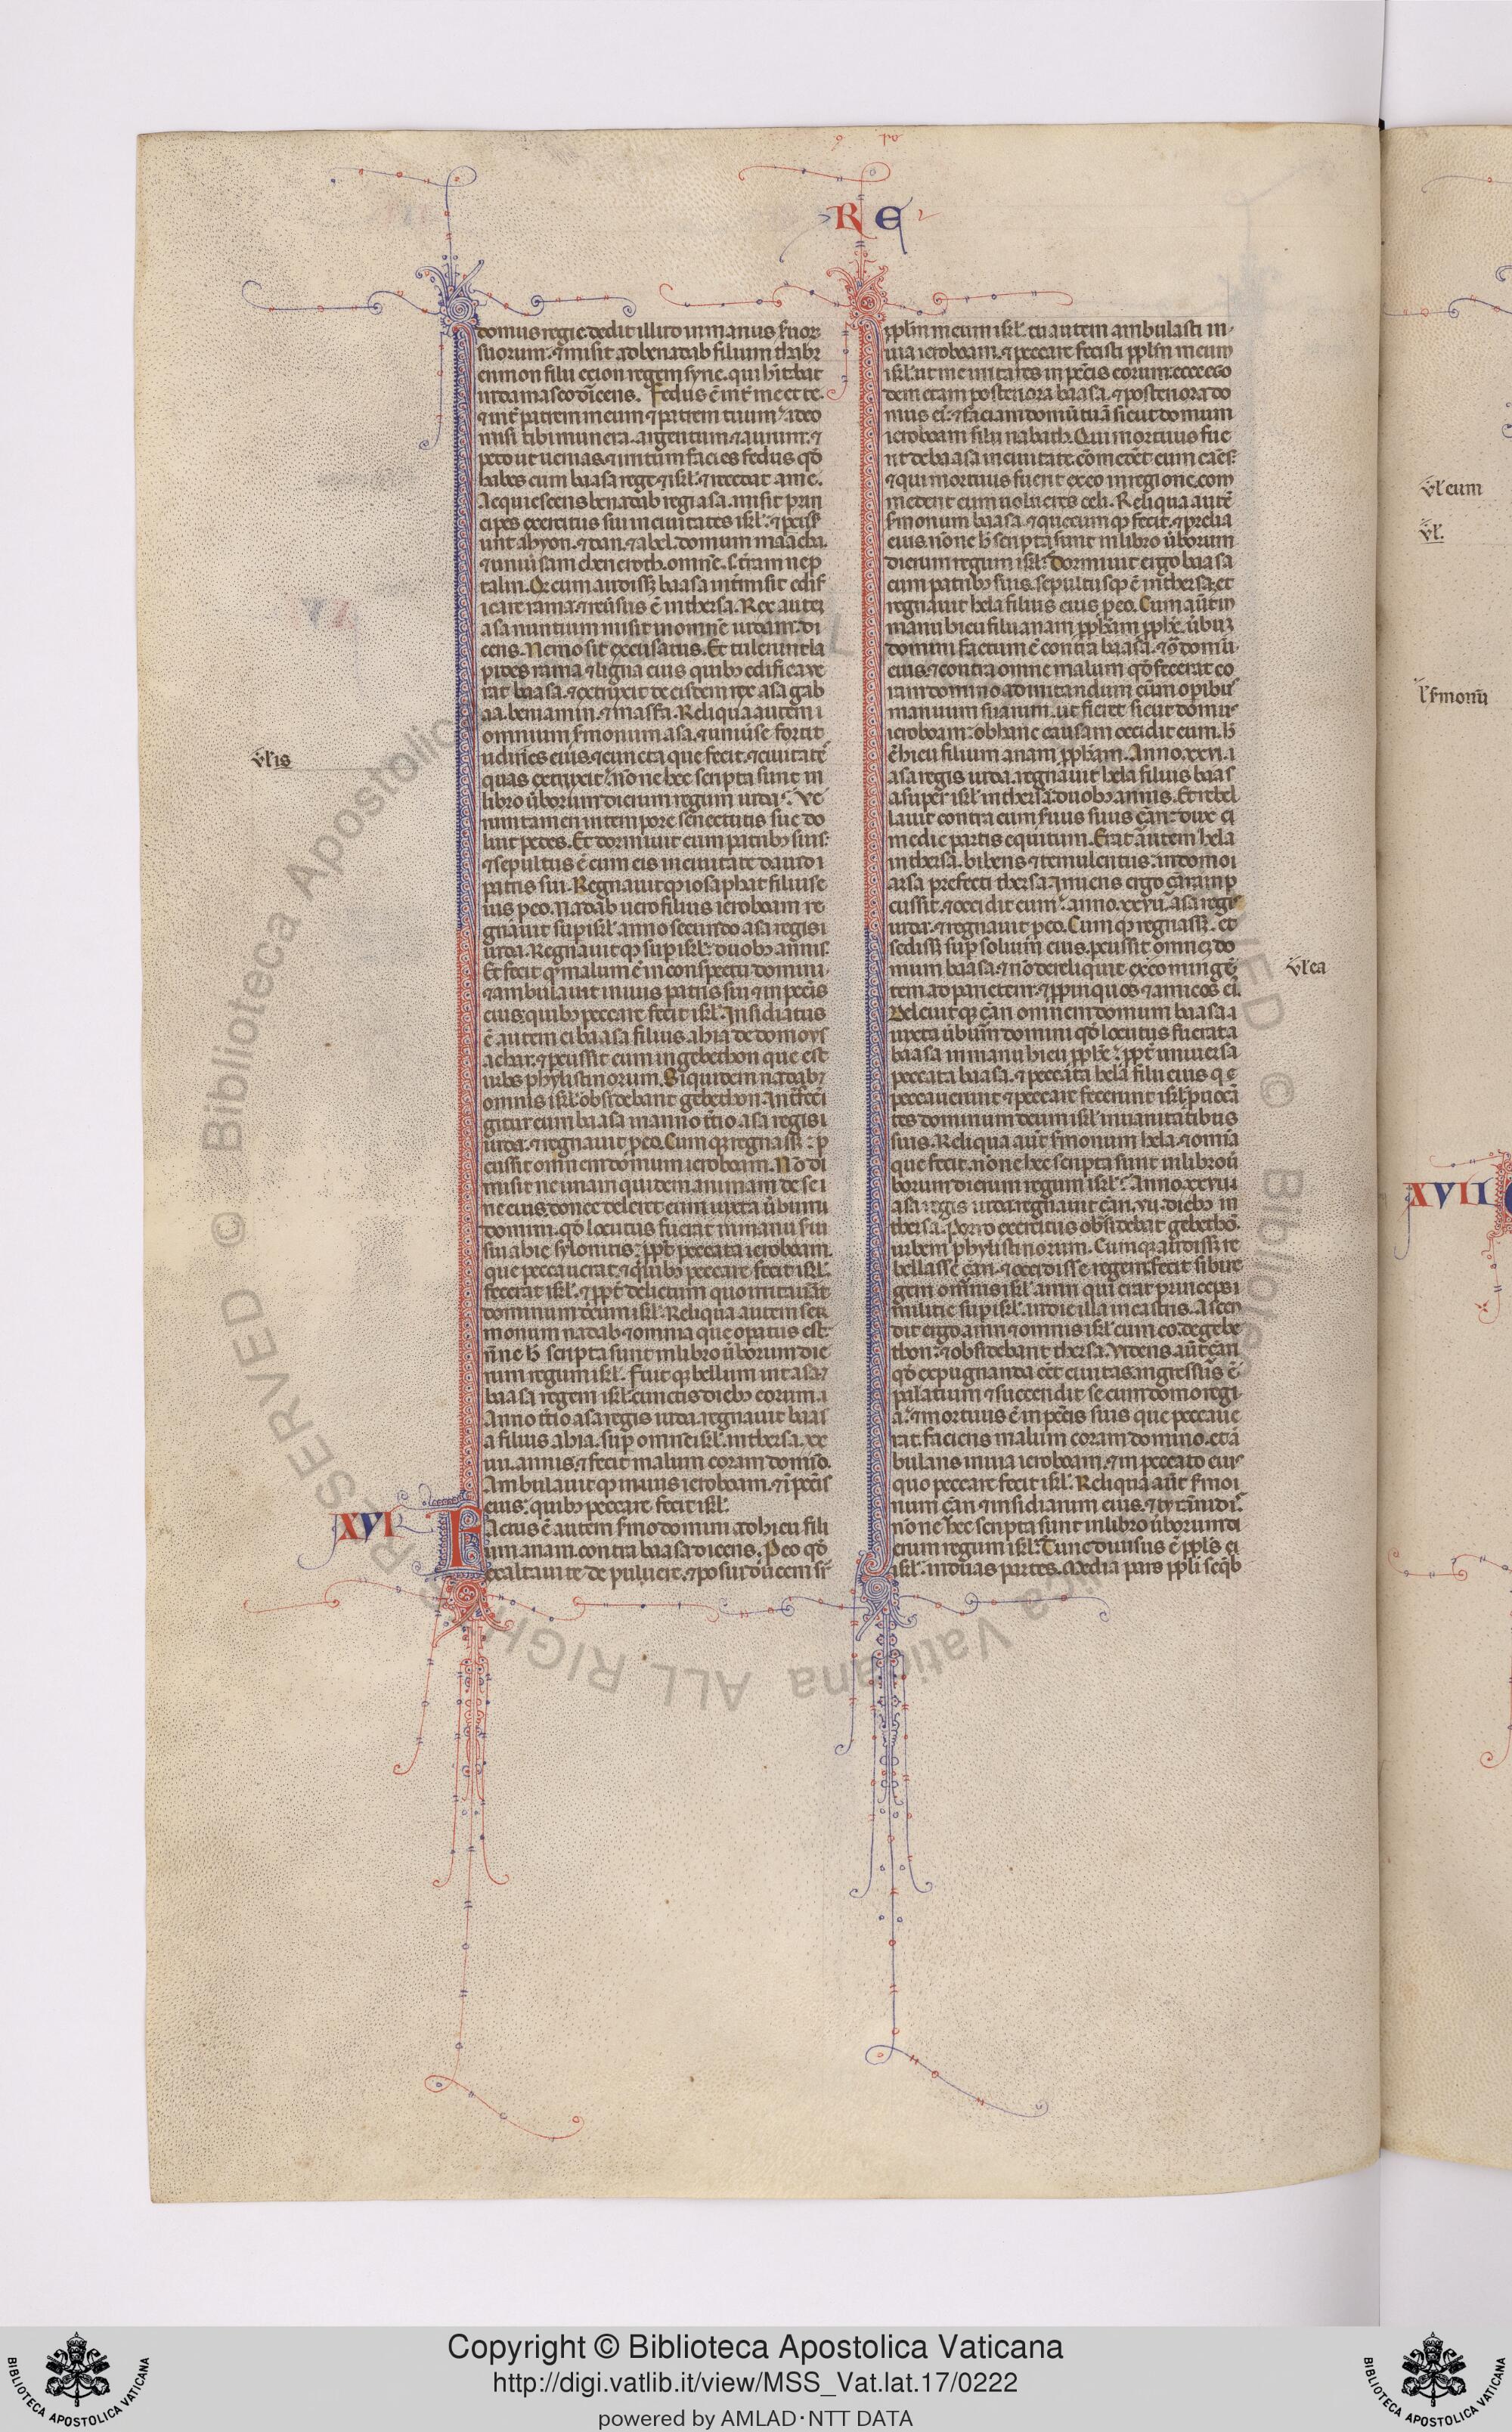 RE
domus regie. dedit illud in manus s̄uor
suorum. ⁊ misit ad benadab filium thabr
enmon filii ecion regem syrie. qui hītabat
in damasco dīcens. Fedus ē int̄ me et te.
⁊ int̄ patrem meum ⁊ patrem tuum. ideo
misi tibi munera. argentum ⁊ aurum. ⁊
peto ut uenias. ⁊ irritum facies fedus qd̄
habes cum baasa rege isrl̄. ⁊ recedat a me.
Acquiescens benadab regi asa. misit prin
cipes exercitus sui in ciuitates isrl̄. ⁊ p̄cuss
unt ahyon. ⁊ dan. ⁊ abel. domum maacha.
⁊ uniūsam cheneroth. omnē. s. t̄ram nep
talim. Qd̄ cum audissꝫ baasa int̄misit edif
icare rama. ⁊ reūsus ē in thersa. Rex autē
asa nuntium misit in omnē iudam. di
cens. Nemo sit excusatus. Et tulerunt la
pides rama ⁊ ligna eius quibꝫ edificaue
rat baasa. ⁊ extruxit de eisdem rex asa gab
aa. beniamin. ⁊ masfa. Reliqua autem
omnium s̄monum asa. ⁊ uniūse fortit
udines eius. ⁊ cuncta que fecit. ⁊ ciuitatē
ul̄ is
quas extruxit. nonne hec scripta sunt in
libro ūborum dierum regum iuda. Ve
rumtamen in tempore senectutis sue do
luit pedes. Et dormiuit cum patribꝫ suis.
⁊ sepultus ē cum eis in ciuitate dauid
patris sui. Regnauitqꝫ iosaphat filius e
ius p̄ eo. Nadab uero filius ieroboam re
gnauit sup isrl̄ anno secundo asa regis
iuda. Regnauitqꝫ sup isrl̄. duobꝫ annis.
Et fecit qd̄ malum ē in conspectu domini.
⁊ ambulauit in uiis patris sui ⁊ in pecc̄is
eius. quibꝫ peccare fecit isrl̄. Insidiatus
ē autem ei baasa filius ahia de domo ys
achar. ⁊ p̄cussit eum in gebethon que est
urbs phylistinorum. Siquidem nadab ⁊
omnis isrl̄ obsidebant gebethon. Int̄fecī
gitur eum baasa in anno t̄tio asa regis
iuda. ⁊ regnauit p̄ eo. Cumqꝫ regnassꝫ. p̄
cussit omnem domum ieroboam. Nō di
misit ne unam quidem animam de sem
ne eius. donec deleret eum iuxta ūbum
domini. qd̄ locutus fuerat in manu s̄ui
sui ahie sylonitis. pp̄t peccata ieroboam.
que peccauerat. ⁊ quibꝫ peccare fecit isrl̄.
fecerat isrl̄. ⁊ pp̄t delictum quo irritauāt
dominum deum isrl̄. Reliqua autem ser
monum nadab ⁊ omnia que opatus est.
nn̄e h̄ scripta sunt in libro ūborum die
rum regum isrl̄. Fuitqꝫ bellum int̄ asa ⁊
baasa regem isrl̄ cunctis diebꝫ eorum.
Anno t̄tio asa regis iuda. regnauit baas
a filius ahia. sup omnē isrl̄. in thersa. xx
iiii. annis. ⁊ fecit malum coram domino.
Ambulauitqꝫ in uiis ieroboam. ⁊ ī pecc̄is
eius. quibꝫ peccare fecit isrl̄.
XVI
Factus ē autem s̄mo domini ad hieu fili
um anam. contra baasa dicens. P̄ eo qd̄
exaltaui te de puluere. ⁊ posui ducem sr̄
pplm̄ meum isrl̄. tu autem ambulasti in
uia ieroboam. ⁊ peccare fecisti pplm̄ meum
isrl̄. ut me irritares in pecc̄is eorum. ecce ego
demetam posteriora baasa. ⁊ posteriora do
mus ei. ⁊ faciam domū tuā sicut domum
ieroboam filii nabath. Qui mortuus fue
rit de baasa in ciuitate. cōmedēt eum canes.
⁊ qui mortuus fuerit ex eo in regione. com
medent eum uolucres celi. Reliqua autē
s̄monum baasa. ⁊ quecumqꝫ fecit. ⁊ prelia
eius. nonne h̄ scripta sunt in libro ūborum
dierum regum isrl̄. Dormiuit ergo baasa
cum patribꝫ suis. sepultusqꝫ ē in thersa. et
regnauit hela filius eius p̄ eo. Cum aūt in
manu hieu filii anam pph̄am pph̄e. ūbuꝫ
domini factum ē contra baasa. ⁊ ō domū
eius. ⁊ contra omne malum qd̄ fecerat co
ram domino ad irritandum eum opibus
manuum suarum. ut fieret sicut domus
ieroboam. ob hanc causam occidit eum. h̄
ē hieu filium anam pph̄am. Anno. xxvi.
asa regis iuda. regnauit hela filius baas
a super isrl̄ in thersa. duobꝫ annis. Et rebel
lauit contra eum s̄uus suus zam̄. dux
medie partis equitum. Erat autem hela
in thersa. bibens ⁊ temulentus. in domo
arsa prefecti thersa. Inruens ergo zam̄ram p̄
cussit. ⁊ occidit eum. anno. xxvii. asa regis
iuda. ⁊ regnauit p̄ eo. Cumqꝫ regnassꝫ. et
sedissꝫ sup solium eius. p̄cussit omnem do
mum baasa. ⁊ nō dereliquit ex eo mingē
ul̄ ea
tem ad parietem. ⁊ ppinquos ⁊ amicos ei.
Deleuitqꝫ zam̄ omnem domum baasa
iuxta ūbum domini qd̄ locutus fuerat a
baasa in manu hieu pph̄e. pp̄t uniuersa
peccata baasa. ⁊ peccata hela filii eius q̄
peccauerunt ⁊ peccare fecerunt isrl̄. p̄uocā
tes dominum deum isrl̄ in uanitatibus
suis. Reliqua aūt s̄monum hela. ⁊ omia
que fecit. nonne hec scripta sunt in libro ū
borum dierum regum isrl̄. Anno. xxvii
asa regis iuda. regnauit zam̄. vii. diebꝫ in
thersa. Porro exercitus obsidebat gebethō.
urbem phylistinorum. Cumqꝫ audissꝫ re
bellasse zam̄. ⁊ occidisse regem. fecit sibi re
gem omnis isrl̄ amri qui erat princeps
militie sup isrl̄. in die illa in castris. Ascen
dit ergo amri ⁊ omnis isrl̄ cum eo. de gebe
thon. ⁊ obsidebant thersa. Videns aūt zam̄
qd̄ expugnanda eēt ciuitas. ingressus ē
palatium ⁊ succendit se cum domo regi
a. ⁊ mortuus ē in pecc̄is suis que peccaue
rat. faciens malum coram domino. et ā
bulans in uia ieroboam. ⁊ in peccato eius
quo peccare fecit isrl̄. Reliqua aūt s̄mo
num zam̄ ⁊ insidiarum eius. ⁊ tyrānidis.
nonne hec scripta sunt in libro ūborum di
erum regum isrl̄. Tunc diuisus ē ppls̄
isrl̄. in duas partes. Media pars ppli seqb
ul̄ eum
ul̄.
l̄ s̄monū
XVII
Copyright © Biblioteca Apostolica Vaticana
http://digi.vatlib.it/view/MSS_Vat.lat.17/0222
powered by AMLAD·NTT DATA
BIBLIOTECA APOSTOLICA VATICANA
BIBLIOTECA APOSTOLICA VATICANA